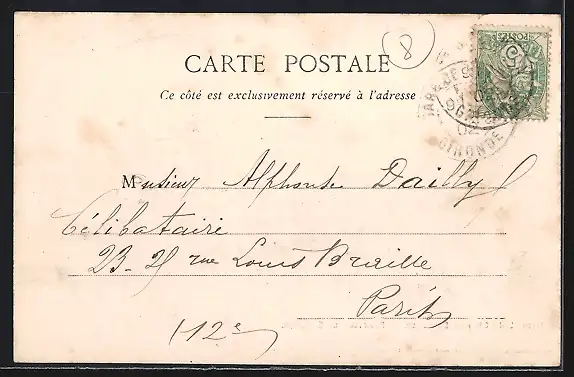 8
CARTE POSTALE
Ce côté est exclusivement réservé à l'adresse
POSTES
GIRONDE
Monsieur Alphonse Dailly
Célibataire
23-25 rue Louis Braille
Paris
(12e)